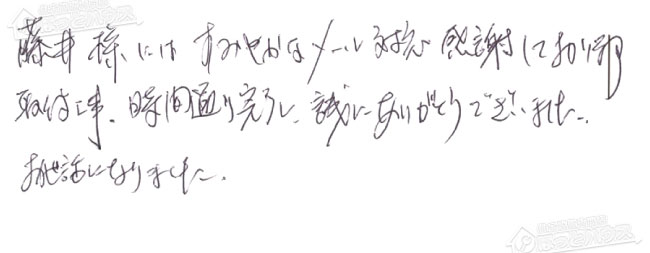 藤井様にはすみやかなメール対応感謝しております
取付工事、時間通り完了し、誠にありがとうございました。
お世話になりました。